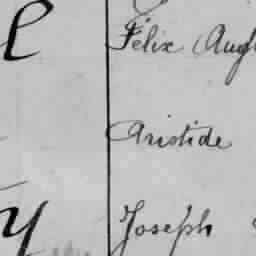 l Félix Aug
Aristide
y Joseph